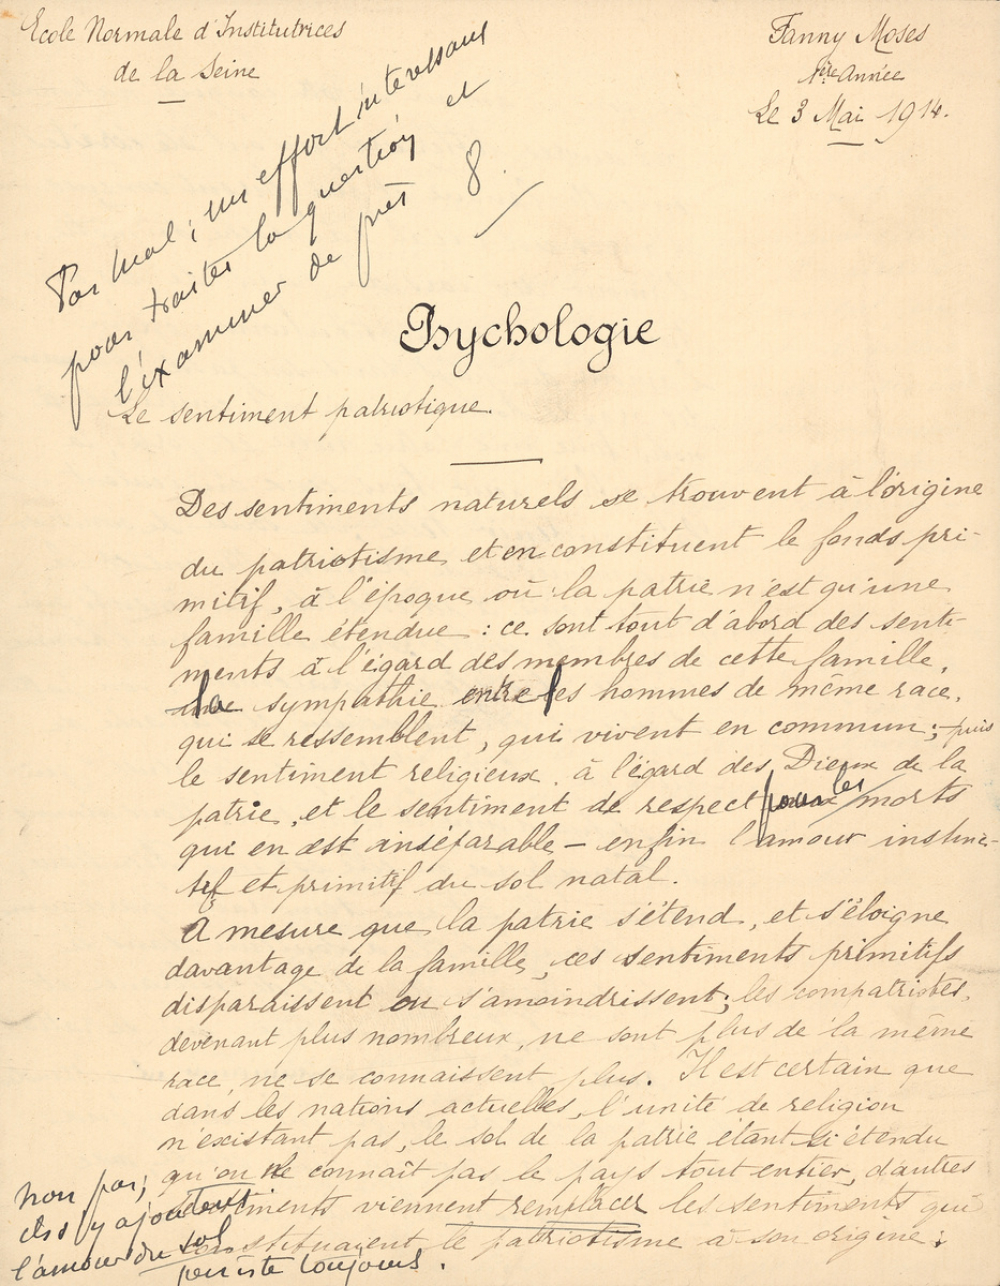 Ecole Normale d'Institutrices
de la Seine
Fanny Moses
1ère Année
Le 3 Mai 1914.
Pas mal ; un effort intéressant
pour traiter la question et
l'examiner de près 8.
Psychologie
Le sentiment patriotique.
Des sentiments naturels se trouvent à l'origine
du patriotisme et en constituent le fonds pri-
mitif, à l'époque où la patrie n'est qu'une
famille étendue : ce sont tout d'abord des senti-
ments à l'égard des membres de cette famille,
la sympathie entre les hommes de même race,
qui se ressemblent, qui vivent en commun ; puis
le sentiment religieux, à l'égard des Dieux de la
patrie, et le sentiment de respect pour les morts
qui en est inséparable – enfin l'amour instinc-
tif et primitif du sol natal.
A mesure que la patrie s'étend, et s'éloigne
davantage de la famille, ces sentiments primitifs
disparaissent ou s'amoindrissent ; les compatriotes,
devenant plus nombreux, ne sont plus de la même
race, ne se connaissent plus. Il est certain que
dans les nations actuelles, l'unité de religion
n'existant pas, le sol de la patrie étant si étendu
qu'on ne connaît pas le pays tout entier, d'autres
sentiments viennent remplacer les sentiments qui
constituaient le patriotisme à son origine :
non pas ;
ils s'y ajoutent
l'amour du sol
persiste toujours.